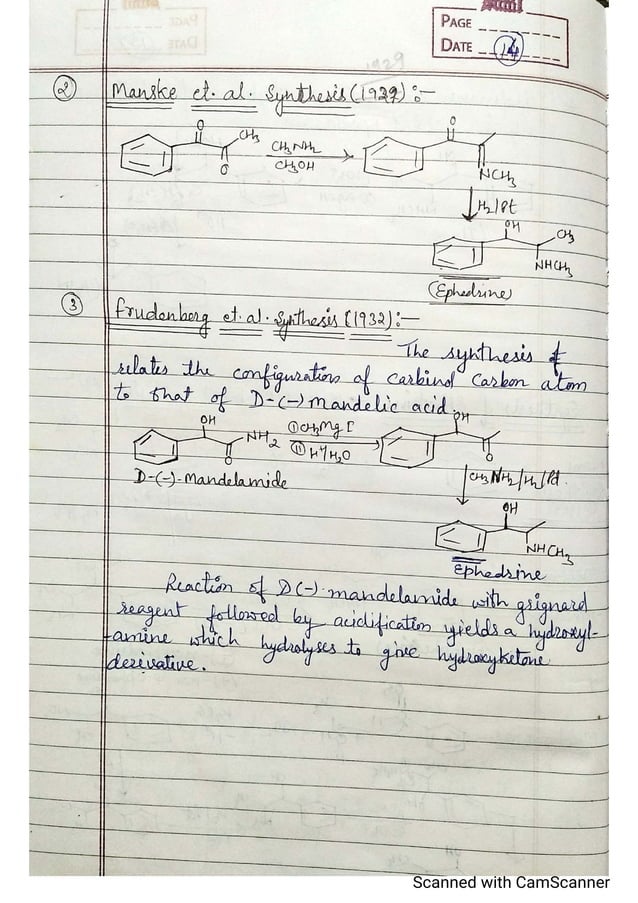 PAGE
DATE 14
② Manske et. al. Synthesis (1929) :-
O
CH3
O
CH3NH2
CH3OH
O
NCH3
H2/Pt
OH
CH3
NHCH3
(Ephedrine)
③ Frudenberg et. al. Synthesis (1932) :-
The synthesis
relates the configuration of carbinol carbon atom
to that of D-(-) mandelic acid.
OH
NH2
O
① CH3MgI
② H+/H2O
OH
O
D-(-)-Mandelamide
CH3NH2/H2/Pd.
OH
NHCH3
Ephedrine
Reaction of D(-) mandelamide with grignard
reagent followed by acidification yields a hydroxyl-
-amine which hydrolyses to give hydroxyketone
derivative.
Scanned with CamScanner